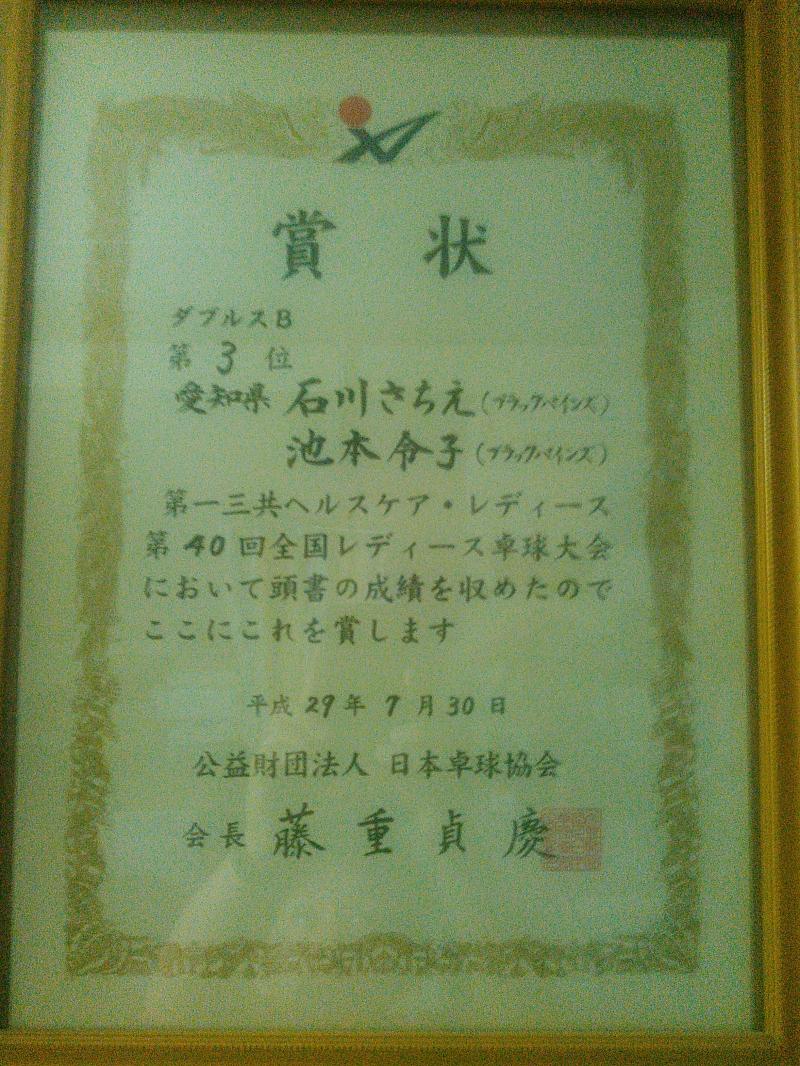 賞状
ダブルスB
第3位
愛知県 石川さちえ(ブラックペインズ)
池本令子(ブラックペインズ)
第一三共ヘルスケア・レディース
第40回全国レディース卓球大会
において頭書の成績を収めたので
ここにこれを賞します
平成29年7月30日
公益財団法人 日本卓球協会
会長 藤重貞慶